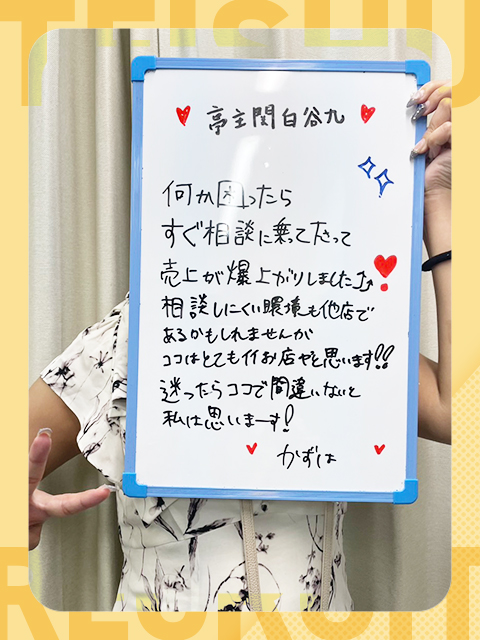 TEISHU
亭主関白谷九
何か困ったら
すぐ相談に乗って下さって
売上が爆上がりしました⤴
相談しにくい環境も他店で
あるかもしれませんが
ココはとてもイイお店やと思います!!
迷ったらココで間違いないと
私は思いまーす!
かずは
RECRUIT